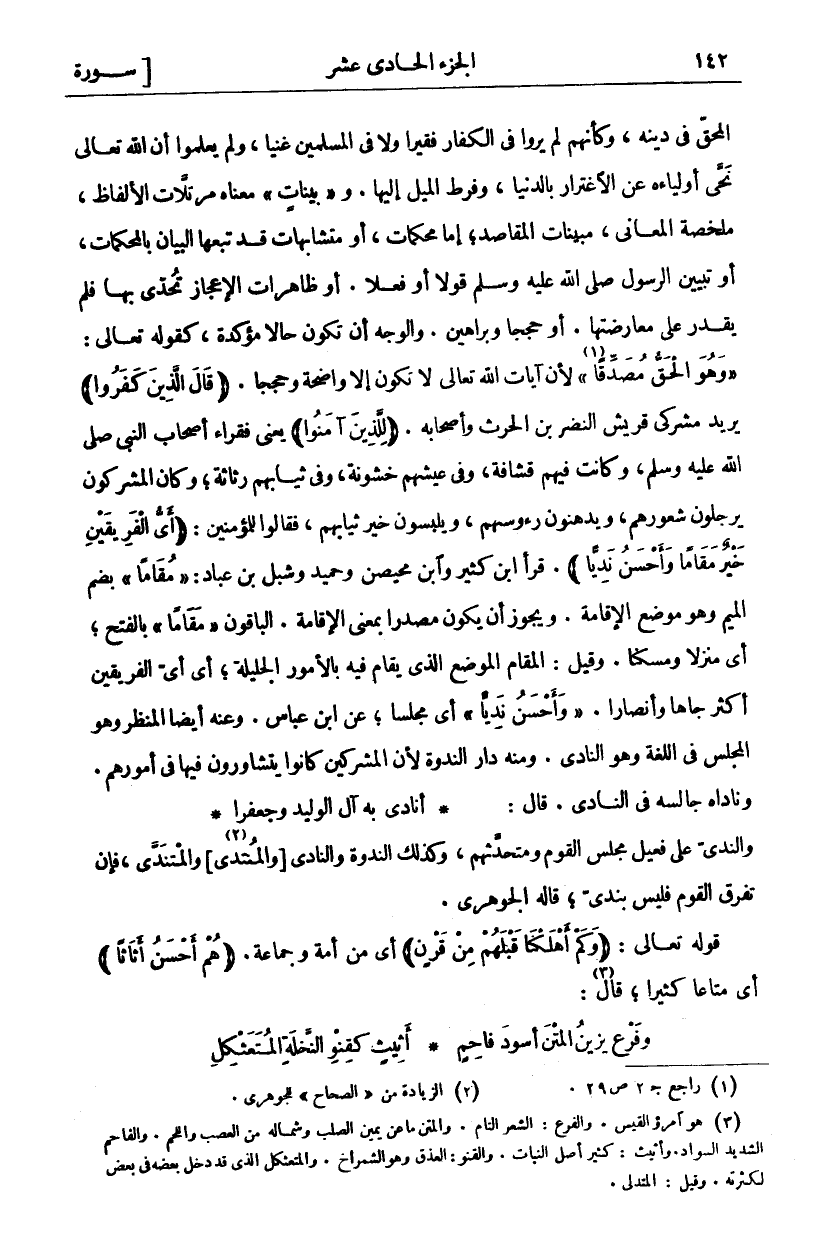 ١٤٢ الجزء الحادى عشر [ سـورة
المحقّ فى دينه ، وكأنهم لم يروا فى الكفار فقيرا ولا فى المسلمين غنيا ، ولم يعلموا أن الله تعالى
نَحَّى أولياءه عن الاغترار بالدنيا ، وفرط الميل إليها . و « بيناتٍ » معناه مرتلَّات الألفاظ ،
ملخصة المعانى ، مبينات المقاصد؛ إما محكمات ، أو متشابهات قد تبعها البيان بالمحكمات ،
أو تبيين الرسول صلى الله عليه وسلم قولا أو فعلا . أو ظاهرات الإعجاز تُحدّى بها فلم
يقدر على معارضتها . أو حججا وبراهين . والوجه أن تكون حالا مؤكدة ، كقوله تعالى :
«وَهُوَ الْحَقُّ مُصَدِّقًا(١)» لأن آيات الله تعالى لا تكون إلا واضحة وحججا . ﴿ قَالَ الَّذِينَ كَفَرُوا﴾
يريد مشركى قريش النضر بن الحرث وأصحابه . ﴿لِلَّذِينَ آمَنُوا﴾ يعنى فقراء أصحاب النبي صلى
الله عليه وسلم، وكانت فيهم قشافة، وفى عيشهم خشونة، وفى ثيابهم رثاثة؛ وكان المشركون
يرجلون شعورهم، ويدهنون رءوسهم ، ويلبسون خير ثيابهم ، فقالوا للؤمنين : ﴿أَىُّ الْفَرِيقَيْنِ
خَيْرٌ مَقَامًا وَأَحْسَنُ نَدِيًّا ﴾ . قرأ ابن كثير وآبن محيصن وحميد وشبل بن عباد: « مُقَامًا » بضم
الميم وهو موضع الإقامة . ويجوز أن يكون مصدرا بمعنى الإقامة . الباقون « مَقَامًا » بالفتح ؛
أى منزلا ومسكنا . وقيل : المقام الموضع الذى يقام فيه بالأمور الجليلة ؛ أى أىّ الفريقين
أكثر جاها وأنصارا . « وَأَحْسَنُ نَدِيًّا » أى مجلسا ؛ عن ابن عباس . وعنه أيضا المنظر وهو
المجلس فى اللغة وهو النادى . ومنه دار الندوة لأن المشركين كانوا يتشاورون فيها فى أمورهم .
وناداه جالسه فى النادى . قال : * أنادى به آل الوليد وجعفرا *
والندىّ على فعيل مجلس القوم ومتحدَّثهم ، وكذلك الندوة والنادى [والمُنتدى](٢) والمُتَندَّى ، فإن
تفرق القوم فليس بندىّ ؛ قاله الجوهرى .
قوله تعالى : ﴿وَكَمْ أَهْلَكْنَا قَبْلَهُمْ مِنْ قَرْنٍ﴾ أى من أمة وجماعة . ﴿ هُمْ أَحْسَنُ أَثَاثًا ﴾
أى متاعا كثيرا ؛ قال(٣) :
وفَرْعٍ يزينُ المتْنَ أسودَ فاحِمٍ * أَثِيثٍ كقِنْوِ النَّخلةِ المُتَعَثْكِلِ
(١) راجع جـ ٢ ص ٢٩ . (٢) الزيادة من « الصحاح » للجوهرى .
(٣) هو آمرؤ القيس . والفرع : الشعر التام . والمتن ما عن يمين الصلب وشماله من العصب واللحم . والفاحم
الشديد السواد . وأثيث : كثير أصل النبات . والقنو : العذق وهو الشمراخ . والمتعثكل الذى قد دخل بعضه فى بعض
لكثرته . وقيل : المتدلى .